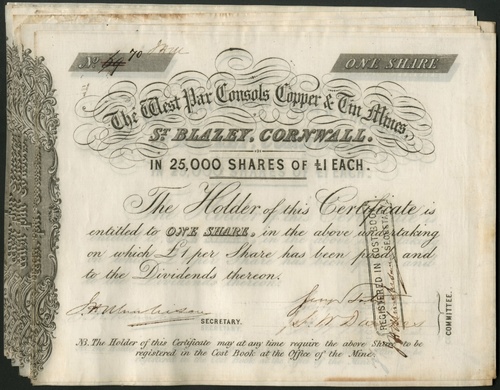 No 70
ONE SHARE
The West Par Consols Copper & Tin Mines,
ST BLAZEY, CORNWALL.
IN 25,000 SHARES OF £1 EACH.
The Holder of this Certificate is
entitled to ONE SHARE, in the above undertaking
on which £1 per Share has been paid and
to the Dividends thereon.
REGISTERED IN COST BOOK
SECRETARY
SECRETARY.
COMMITTEE.
NB. The Holder of this Certificate may at any time require the above Share to be
registered in the Cost Book at the Office of the Mine.